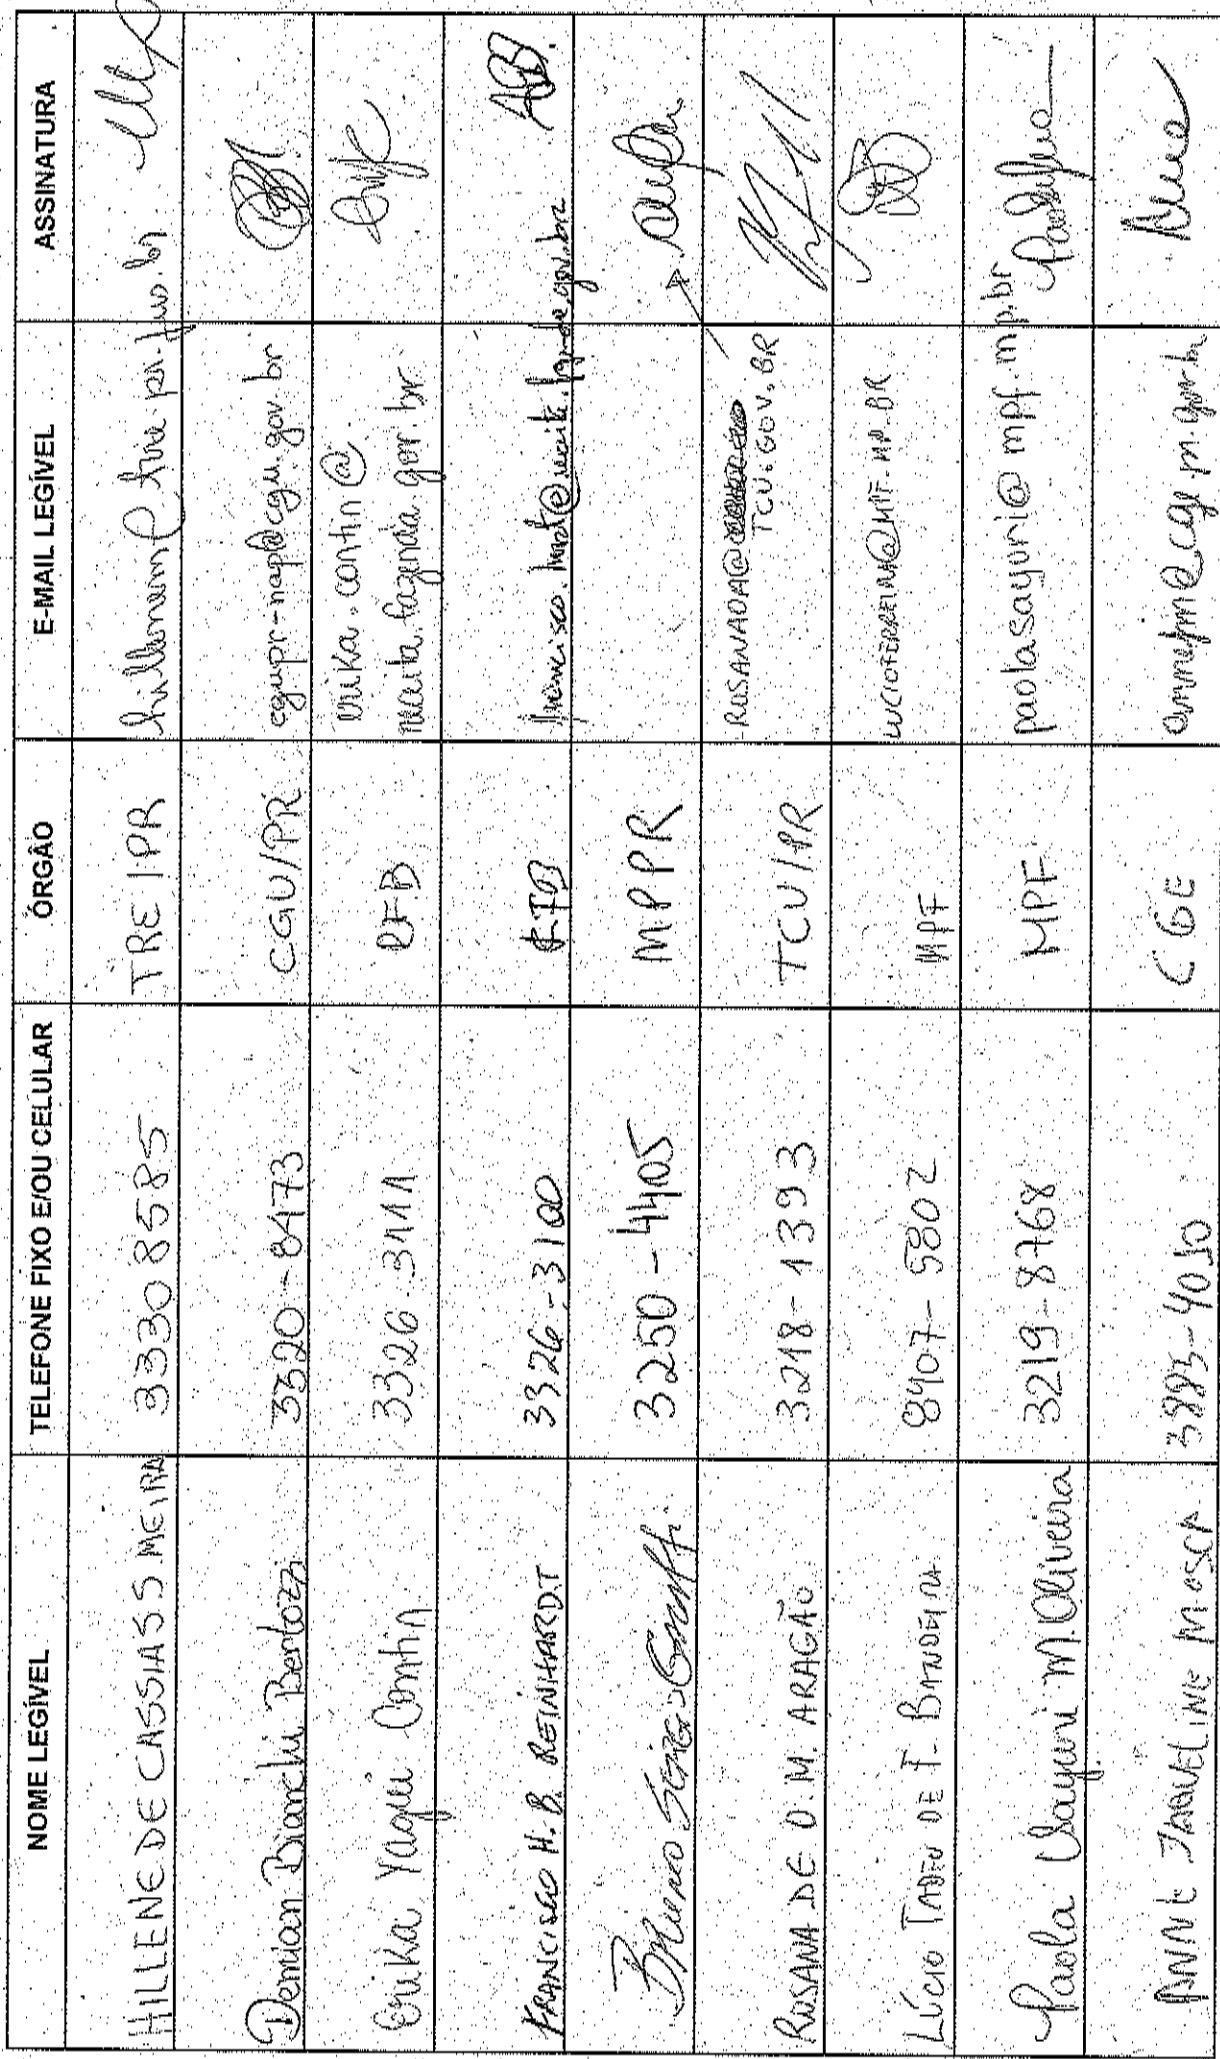 NOME LEGÍVEL TELEFONE FIXO E/OU CELULAR ÓRGÃO E-MAIL LEGÍVEL ASSINATURA
HILLENE DE CASSIA S MEIRA 33308585 TRE/PR
Demian Bianchi Bertozzi 3320-8473 CGU/PR cgupr-nap@cgu.gov.br
Erika Yaqui Contin 3326-3111 RFB erika.contin@
receita.fazenda.gov.br
FRANCISCO H. B. REINHARDT 3326-3100 RFB
BRUNO SÉRGIO 3250-4405 MPPR
ROSANA DE O. M. ARAGÃO 3218-1393 TCU/PR ROSANAOA@
TCU.GOV.BR
LÚCIO TADEU DE F. BANDEIRA 8407-5802 MPF @MPF.MP.BR
Paola Sayuri M. Oliveira 3219-8768 MPF paolasayuri@mpf.mp.br
ANNE JAQUELINE 3883-4010 CGE